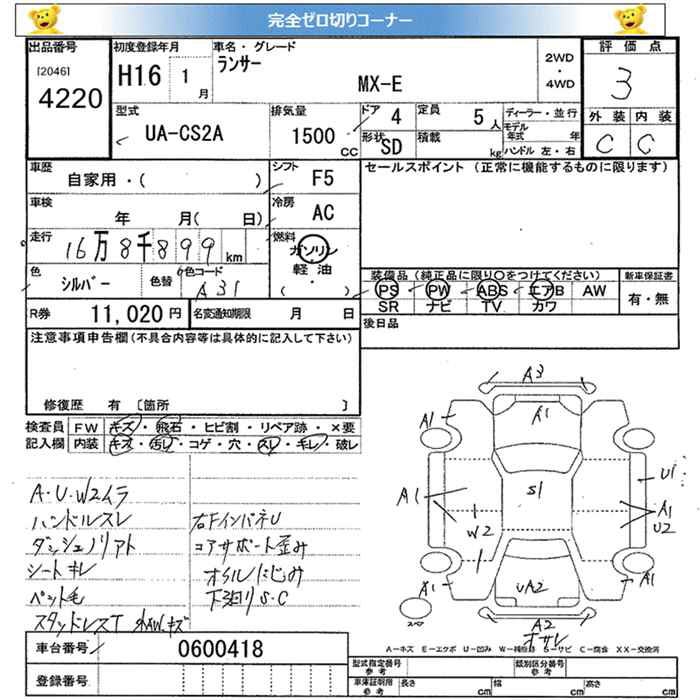 完全ゼロ切りコーナー
出品番号
[2046]
4220
初度登録年月
H16 1月
車名・グレード
ランサー
MX-E
2WD
・
4WD
評価点
3
外装 内装
C C
型式
UA-CS2A
排気量
1500 CC
ドア 4
定員 5人
形状 SD
積載 kg
ディーラー・並行
モデル年式 年
ハンドル 左・右
車歴
自家用・( )
シフト F5
車検
年 月( 日)
冷房 AC
走行
16万8千899 km
燃料
ガソリン
・
軽油
( )
色
シルバー
色替
色コード
A31
セールスポイント (正常に機能するものに限ります)
装備品 (純正品に限り○をつけてください)
PS PW ABS エアB AW
SR ナビ TV カワ
新車保証書
有・無
R券 11,020 円
名変通知期限 月 日
後日品
注意事項申告欄(不具合内容等は具体的に記入して下さい)
修復歴 有 [箇所 ]
検査員記入欄
FW キズ・飛石・ヒビ割・リペア跡・×要
内装 キズ・汚レ・コゲ・穴・スレ・キレ・破レ
A・U・W2ムラ
ハンドルスレ
右FインパネU
ダッシュノリアト
コアサポート歪み
シートキレ
オイルにじみ
ペット毛
下廻りS・C
スタッドレスT 外AW.キズ
A3
A1
A1
A1
S1
U1
A1
U2
W2
A1
UA2
A1
A2
オサレ
A-キズ E-エクボ U-凹み W-補修跡 S-サビ C-腐食 XX-交換済
車台番号
0600418
登録番号
型式指定番号
参考
類別区分番号
参考
車庫証明用
参考
長さ cm 幅 cm 高さ cm